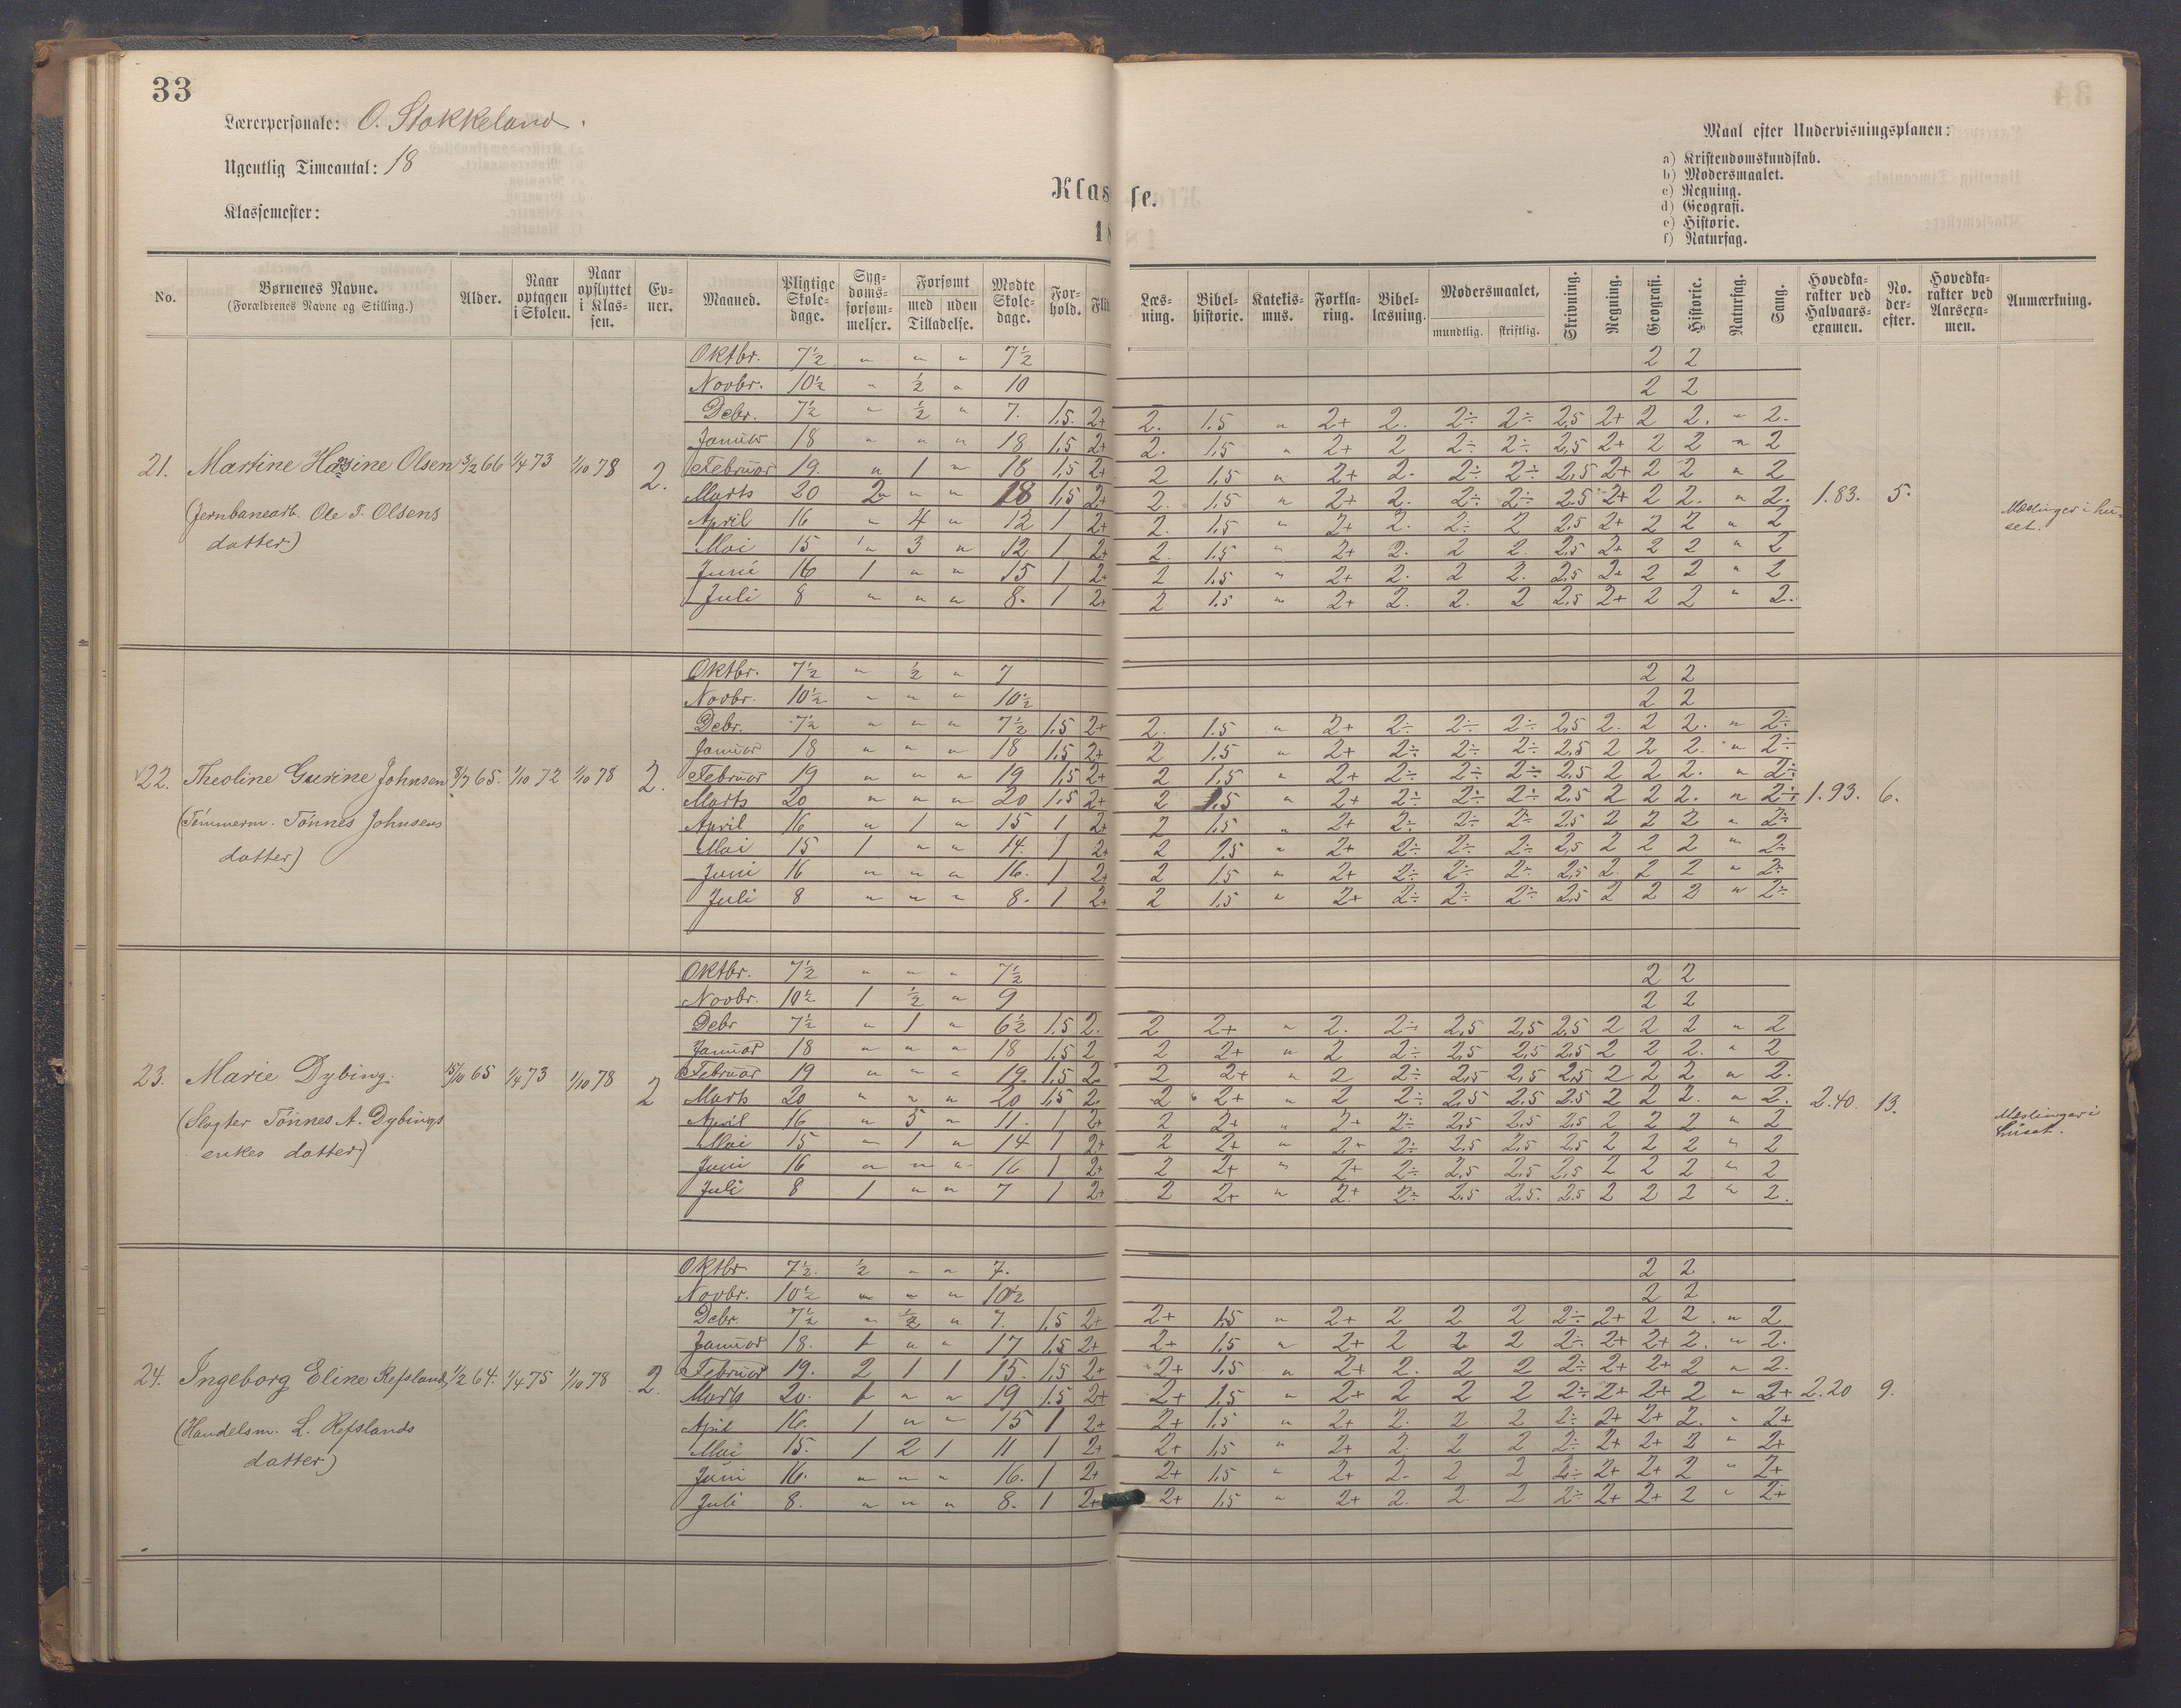 33
Lærerpersonale: O. Stokkeland.
Ugentlig Timeantal: 18
Klassemester:
Klasse.
18
Maal efter Undervisningsplanen:
a) Kristendomskundskab.
b) Modersmaalet.
c) Regning.
d) Geografi.
e) Historie.
f) Naturfag.
No. | Børnenes Navne. (Forældrenes Navne og Stilling.) | Alder. | Naar optagen i Skolen. | Naar opflyttet i Klassen. | Evner. | Maaned. | Pligtige Skoledage. | Sygdomsforsømmelser. | Forsømt med / uden Tilladelse. | Mødte Skoledage. | Forhold. | Flid | Læsning. | Bibelhistorie. | Katekismus. | Forklaring. | Bibellæsning. | Modersmaalet, mundtlig. | skriftlig. | Skrivning. | Regning. | Geografi. | Historie. | Naturfag. | Sang. | Hovedkarakter ved Halvaarsexamen. | No. derefter. | Hovedkarakter ved Aarsexamen. | Anmærkning.
21. Martine Hansine Olsen 3/2 66 1/4 73 1/10 78 2.
(Jernbanearb. Ole T. Olsens
datter)
Oktbr. 7½ " " " 7½ 2 2
Novbr. 10½ " ½ " 10 2 2
Debr. 7½ " ½ " 7. 1,5. 2+ 2. 1.5 " 2+ 2. 2÷ 2÷ 2,5 2+ 2 2. " 2.
Januar 18 " " " 18 1,5 2+ 2. 1,5 " 2+ 2 2÷ 2÷ 2,5 2+ 2 2 " 2
Februar 19. " 1 " 18 1,5 2+ 2 1,5 " 2+ 2. 2÷ 2÷ 2,5 2+ 2 2 " 2
Marts 20 2 " " 18 1,5 2+ 2. 1,5 " 2+ 2. 2÷ 2÷ 2,5 2+ 2 2. " 2. 1.83. 5.
April 16 " 4 " 12 1 2+ 2. 1,5 " 2+ 2. 2÷ 2 2,5 2+ 2 2 " 2
Mai 15 " 3 " 12 1 2+ 2. 1.5 " 2+ 2. 2 2. 2,5 2+ 2 2 " 2
Juni 16 1 " " 15 1 2+ 2 1,5 " 2+ 2. 2 2. 2,5 2+ 2 2 " 2
Juli 8 " " " 8. 1 2+ 2 1.5 " 2+ 2. 2. 2 2,5 2+ 2 2 " 2.
Mæslinger i hu-
set.
22. Theoline Gurine Johnsen 8/7 65. 1/10 72 1/10 78 2.
(Tømmerm. Tønnes Johnsens
datter)
Oktbr. 7½ " ½ " 7 2 2
Novbr. 10½ " " " 10½ 2 2
Debr. 7½ " " " 7½ 1,5 2+ 2. 1.5 " 2+ 2÷ 2÷ 2÷ 2,5 2. 2 2. " 2÷
Januar 18 " " " 18 1,5 2+ 2 1,5 " 2+ 2÷ 2÷ 2÷ 2,5 2 2 2. " 2÷
Februar 19 " " " 19 1,5 2+ 2 1,5 " 2+ 2÷ 2÷ 2÷ 2,5 2 2 2. " 2÷
Marts 20 " " " 20 1,5 2+ 2 1,5 " 2+ 2÷ 2÷ 2÷ 2,5 2 2 2. " 2÷ 1.93. 6.
April 16 " 1 " 15 1 2+ 2 1,5 " 2+ 2÷ 2÷ 2÷ 2,5 2 2 2 " 2÷
Mai 15 1 " " 14. 1 2+ 2 1.5 " 2+ 2÷ 2÷ 2÷ 2,5 2 2 2 " 2÷
Juni 16 " " " 16. 1 2+ 2 1.5 " 2+ 2÷ 2÷ 2÷ 2,5 2. 2 2 " 2÷
Juli 8 " " " 8. 1 2+ 2 1,5 " 2+ 2÷ 2÷ 2÷ 2,5 2 2 2 " 2÷
23. Marie Dybing. 15/10 65 1/4 73 1/10 78 2
(Slagter Tønnes A. Dybings
enkes datter)
Oktbr. 7½ " " " 7½ 2 2
Novbr. 10½ 1 ½ " 9 2 2
Debr 7½ " 1 " 6½ 1.5 2. 2 2+ " 2. 2÷ 2,5 2,5 2,5 2 2 2 " 2
Januar 18 " " " 18 1,5 2 2 2+ " 2 2÷ 2,5 2,5 2,5 2 2 2. " 2
Februar 19 " " " 19. 1,5 2. 2 2+ " 2 2÷ 2,5 2,5 2,5 2 2 2 " 2.
Marts 20 " " " 20 1,5 2. 2 2+ " 2 2÷ 2,5 2,5 2.5 2 2 2. " 2. 2.40. 13.
April 16 " 5 " 11. 1 2+ 2 2+ " 2+ 2÷ 2,5 2.5 2,5 2 2 2 " 2
Mai 15 " 1 " 14 1 2+ 2 2+ " 2+ 2÷ 2,5 2,5 2,5 2 2 2 " 2
Juni 16 " " " 16 1 2+ 2 2+ " 2+ 2÷ 2,5 2,5 2,5 2 2 2 " 2
Juli 8 1 " " 7 1 2+ 2 2+ " 2+ 2÷ 2,5 2,5. 2,5 2 2 2 " 2.
Mæslinger i
huset.
24. Ingeborg Eline Refsland 1/2 64. 1/4 75 1/10 78 2.
(Handelsm. L. Refslands
datter)
Oktbr. 7½. ½ " " 7. 2 2
Novbr. 10½ " " " 10½ 2 2
Debr. 7½ " ½ " 7. 1,5 2+ 2+ 1.5 " 2+ 2 2 2 2÷ 2+ 2 2. " 2
Januar 18. 1 " " 17 1,5 2+ 2+ 1,5 " 2+ 2 2 2 2÷ 2+ 2+ 2. " 2.
Februar 19. 2 1 1 15. 1,5 2+ 2+ 1,5 " 2+ 2. 2 2 2÷ 2+ 2+ 2 " 2.
Marts 20. 1 " " 19 1.5 2+ 2+ 1,5 " 2+ 2 2 2 2÷ 2+ 2+ 2 " 2+ 2.20 9.
April 16. 1 " " 15 1 2+ 2+ 1,5 " 2+ 2. 2 2 2÷ 2+ 2+ 2. " 2+
Mai 15. 1 2 1 11 1 2+ 2+ 1,5 " 2+ 2. 2 2 2÷ 2+ 2+ 2 " 2+
Juni 16. " " " 16. 1 2+ 2+ 1,5 " 2+ 2. 2 2 2÷ 2+ 2+ 2 " 2+
Juli 8. " " " 8. 1 2+ 2+ 1,5 " 2+ 2. 2. 2 2÷ 2+ 2+ 2 " 2+